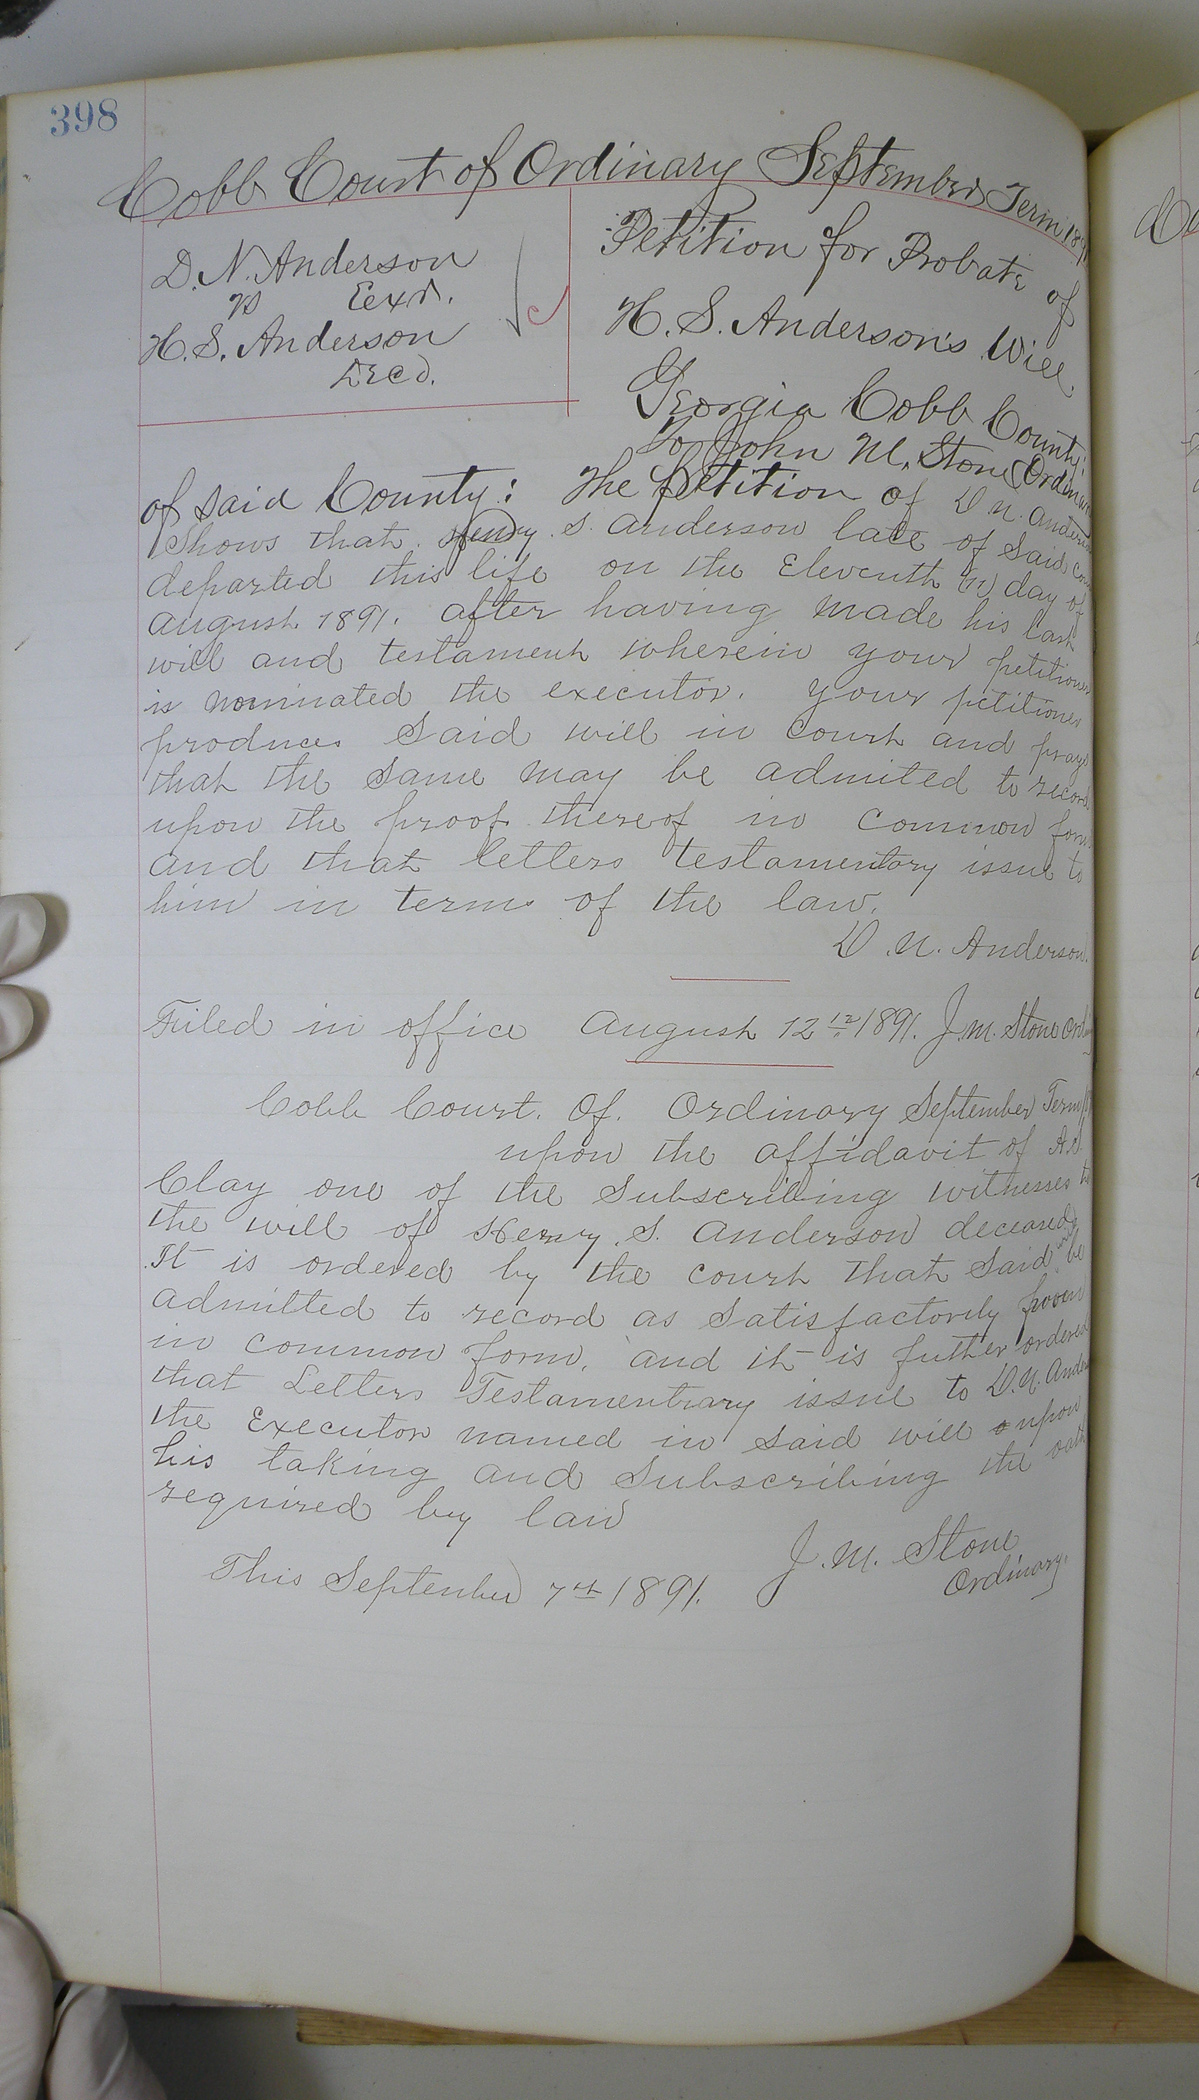 398
Cobb Court of Ordinary September Term 189
D. N. Anderson
vs Eexr.
H. S. Anderson
Decd.
Petition for Probate of
H. S. Anderson's Will
Georgia Cobb County:
To John M. Stone Ordinary
of said County: The Petition of D N. Anderson
Shows that Henry S. Anderson late of Said
departed this life on the Eleventh day of
August 1891. after having made his last
will and testament wherein your petitioner
is nominated the executor. your petitioner
produces Said will in Court and prays
that the Same may be admited to record
upon the proof thereof in Common form
and that letters testamentary issue to
him in terms of the law.
D. N. Anderson.
Filed in office August 12 1891. J. M. Stone Ord
Cobb Court. Of. Ordinary September Term
upon the affidavit of
Clay one of the Subscribing witnesses to
the will of Henry. S. Anderson deceased
It is ordered by the Court that Said will be
admitted to record as Satisfactorily proven
in Common form, and it is futher ordered
that Letters Testamentrary issue to D. N. Ander
the Executor named in Said will upon
his taking and Subscribing the oath
required by law
J. M. Stone
Ordinary.
This September 7th 1891.